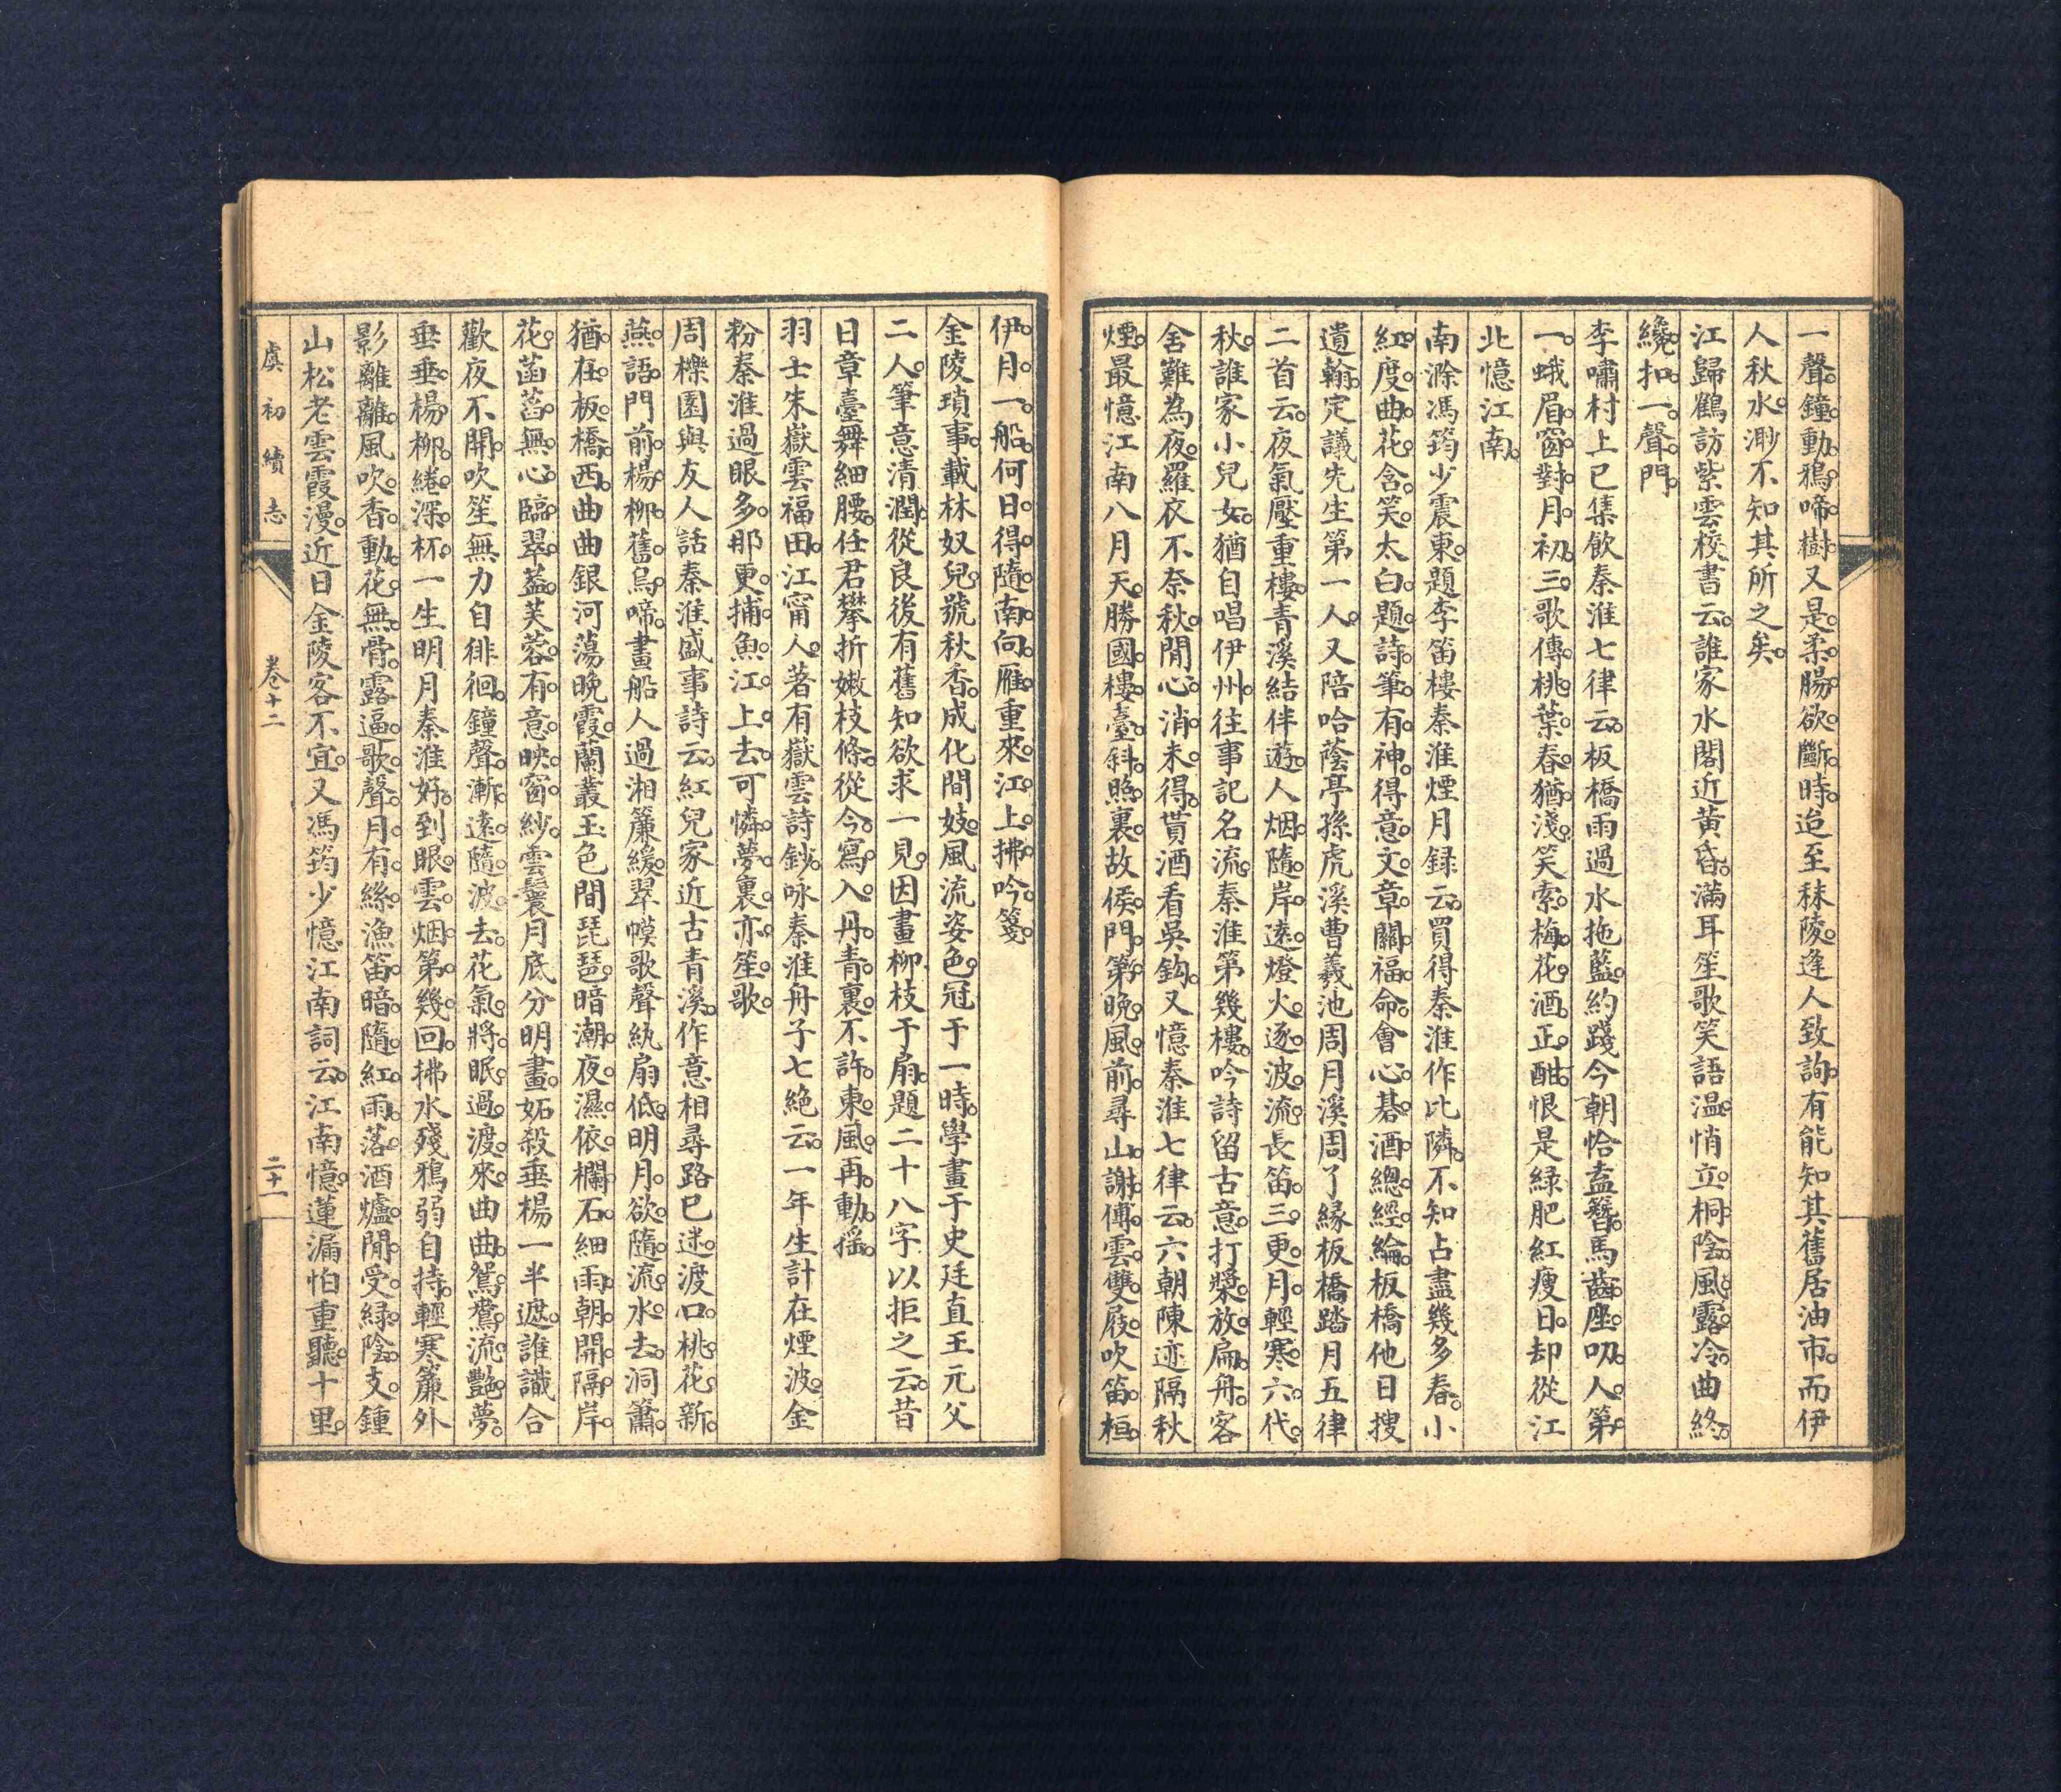 一聲鐘動鴉啼樹又是柔腸欲斷時迨至秣陵逢人致詢有能知其舊居油市而伊
人秋水渺不知其所之矣
江歸鶴訪紫雲校書云誰家水閣近黃昏滿耳笙歌笑語温悄立桐陰風露冷曲終
纔扣一聲門
李嘯村上巳集飲秦淮七律云板橋雨過水拖藍約踐今朝恰盍簪馬齒座叨人第
一蛾眉窗對月初三歌傳桃葉春猶淺笑索梅花酒正酣恨是緑肥紅瘦日却從江
北憶江南
南滁馮筠少震東題李笛樓秦淮煙月録云買得秦淮作比隣不知占盡幾多春小
紅度曲花含笑太白題詩筆有神得意文章關福命會心碁酒總經綸板橋他日搜
遺翰定議先生第一人又陪哈蔭亭孫虎溪曹羲池周月溪周了緣板橋踏月五律
二首云夜氣壓重樓青溪結伴遊人烟隨岸遠燈火逐波流長笛三更月輕寒六代
秋誰家小兒女猶自唱伊州往事記名流秦淮第幾樓吟詩留古意打槳放扁舟客
舍難為夜羅衣不奈秋閒心消未得貰酒看吳鈎又憶秦淮七律云六朝陳迹隔秋
煙最憶江南八月天勝國樓臺斜照裏故侯門第晚風前尋山謝傅雲雙屐吹笛桓
伊月一船何日得隨南向雁重來江上拂吟箋
金陵瑣事載林奴兒號秋香成化間妓風流姿色冠于一時學畫于史廷直王元父
二人筆意清潤從良後有舊知欲求一見因畫柳枝于扇題二十八字以拒之云昔
日章臺舞細腰任君攀折嫩枝條從今寫入丹青裏不許東風再動搖
羽士朱嶽雲福田江甯人著有嶽雲詩鈔咏秦淮舟子七絶云一年生計在煙波金
粉秦淮過眼多那更捕魚江上去可憐夢裏亦笙歌
周櫟園與友人話秦淮盛事詩云紅兒家近古青溪作意相尋路已迷渡口桃花新
燕語門前楊柳舊烏啼畫船人過湘簾緩翠幙歌聲紈扇低明月欲隨流水去洞簫
猶在板橋西曲曲銀河蕩晚霞蘭叢玉色間琵琶暗潮夜濕依欄石細雨朝開隔岸
花菡萏無心臨翠蓋芙蓉有意映窗紗雲鬟月底分明畫妬殺垂楊一半遮誰識合
歡夜不開吹笙無力自徘徊鐘聲漸遠隨波去花氣將眠過渡來曲曲鴛鴦流艷夢
垂垂楊柳綣深杯一生明月秦淮好到眼雲烟第幾回拂水殘鴉弱自持輕寒簾外
影離離風吹香動花無骨露逼歌聲月有絲漁笛暗隨紅雨落酒爐閒受緑陰支鍾
山松老雲霞漫近日金陵客不宜又馮筠少憶江南詞云江南憶蓮漏怕重聽十里
虞初續志
卷十二
二十一